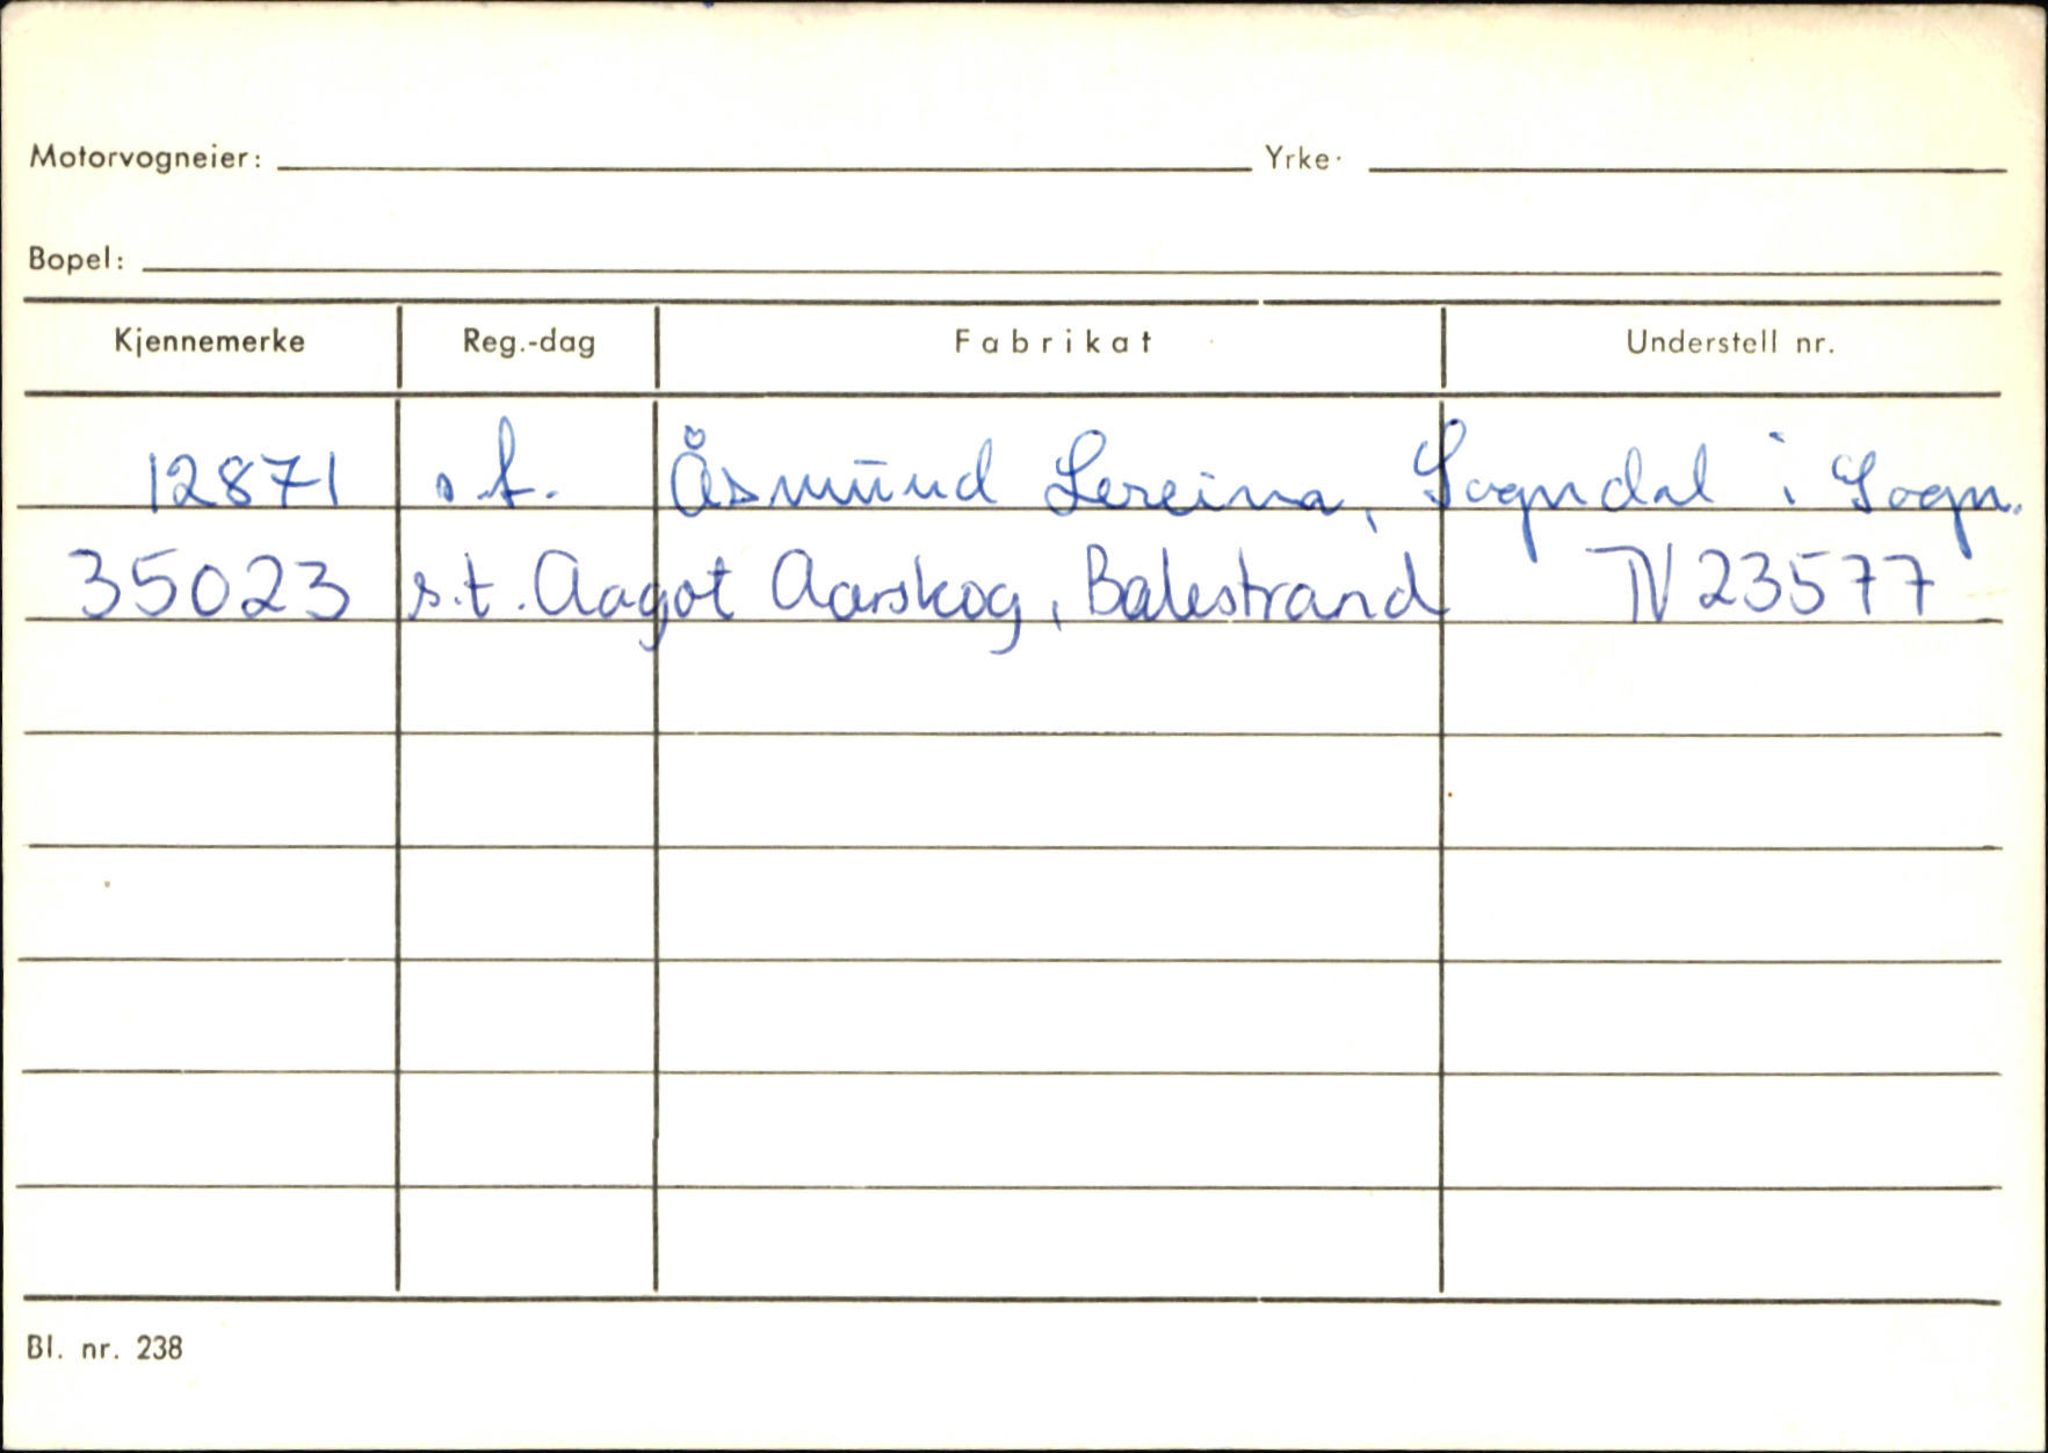 Motorvogneier: Yrke.
Bopel:
Kjennemerke Reg.-dag Fabrikat Understell nr.
12871 s.t. Åsmund Lereim, Sogndal i Sogn.
35023 s.t. Aagot Aarskog, Balestrand TV 23577
Bl. nr. 238